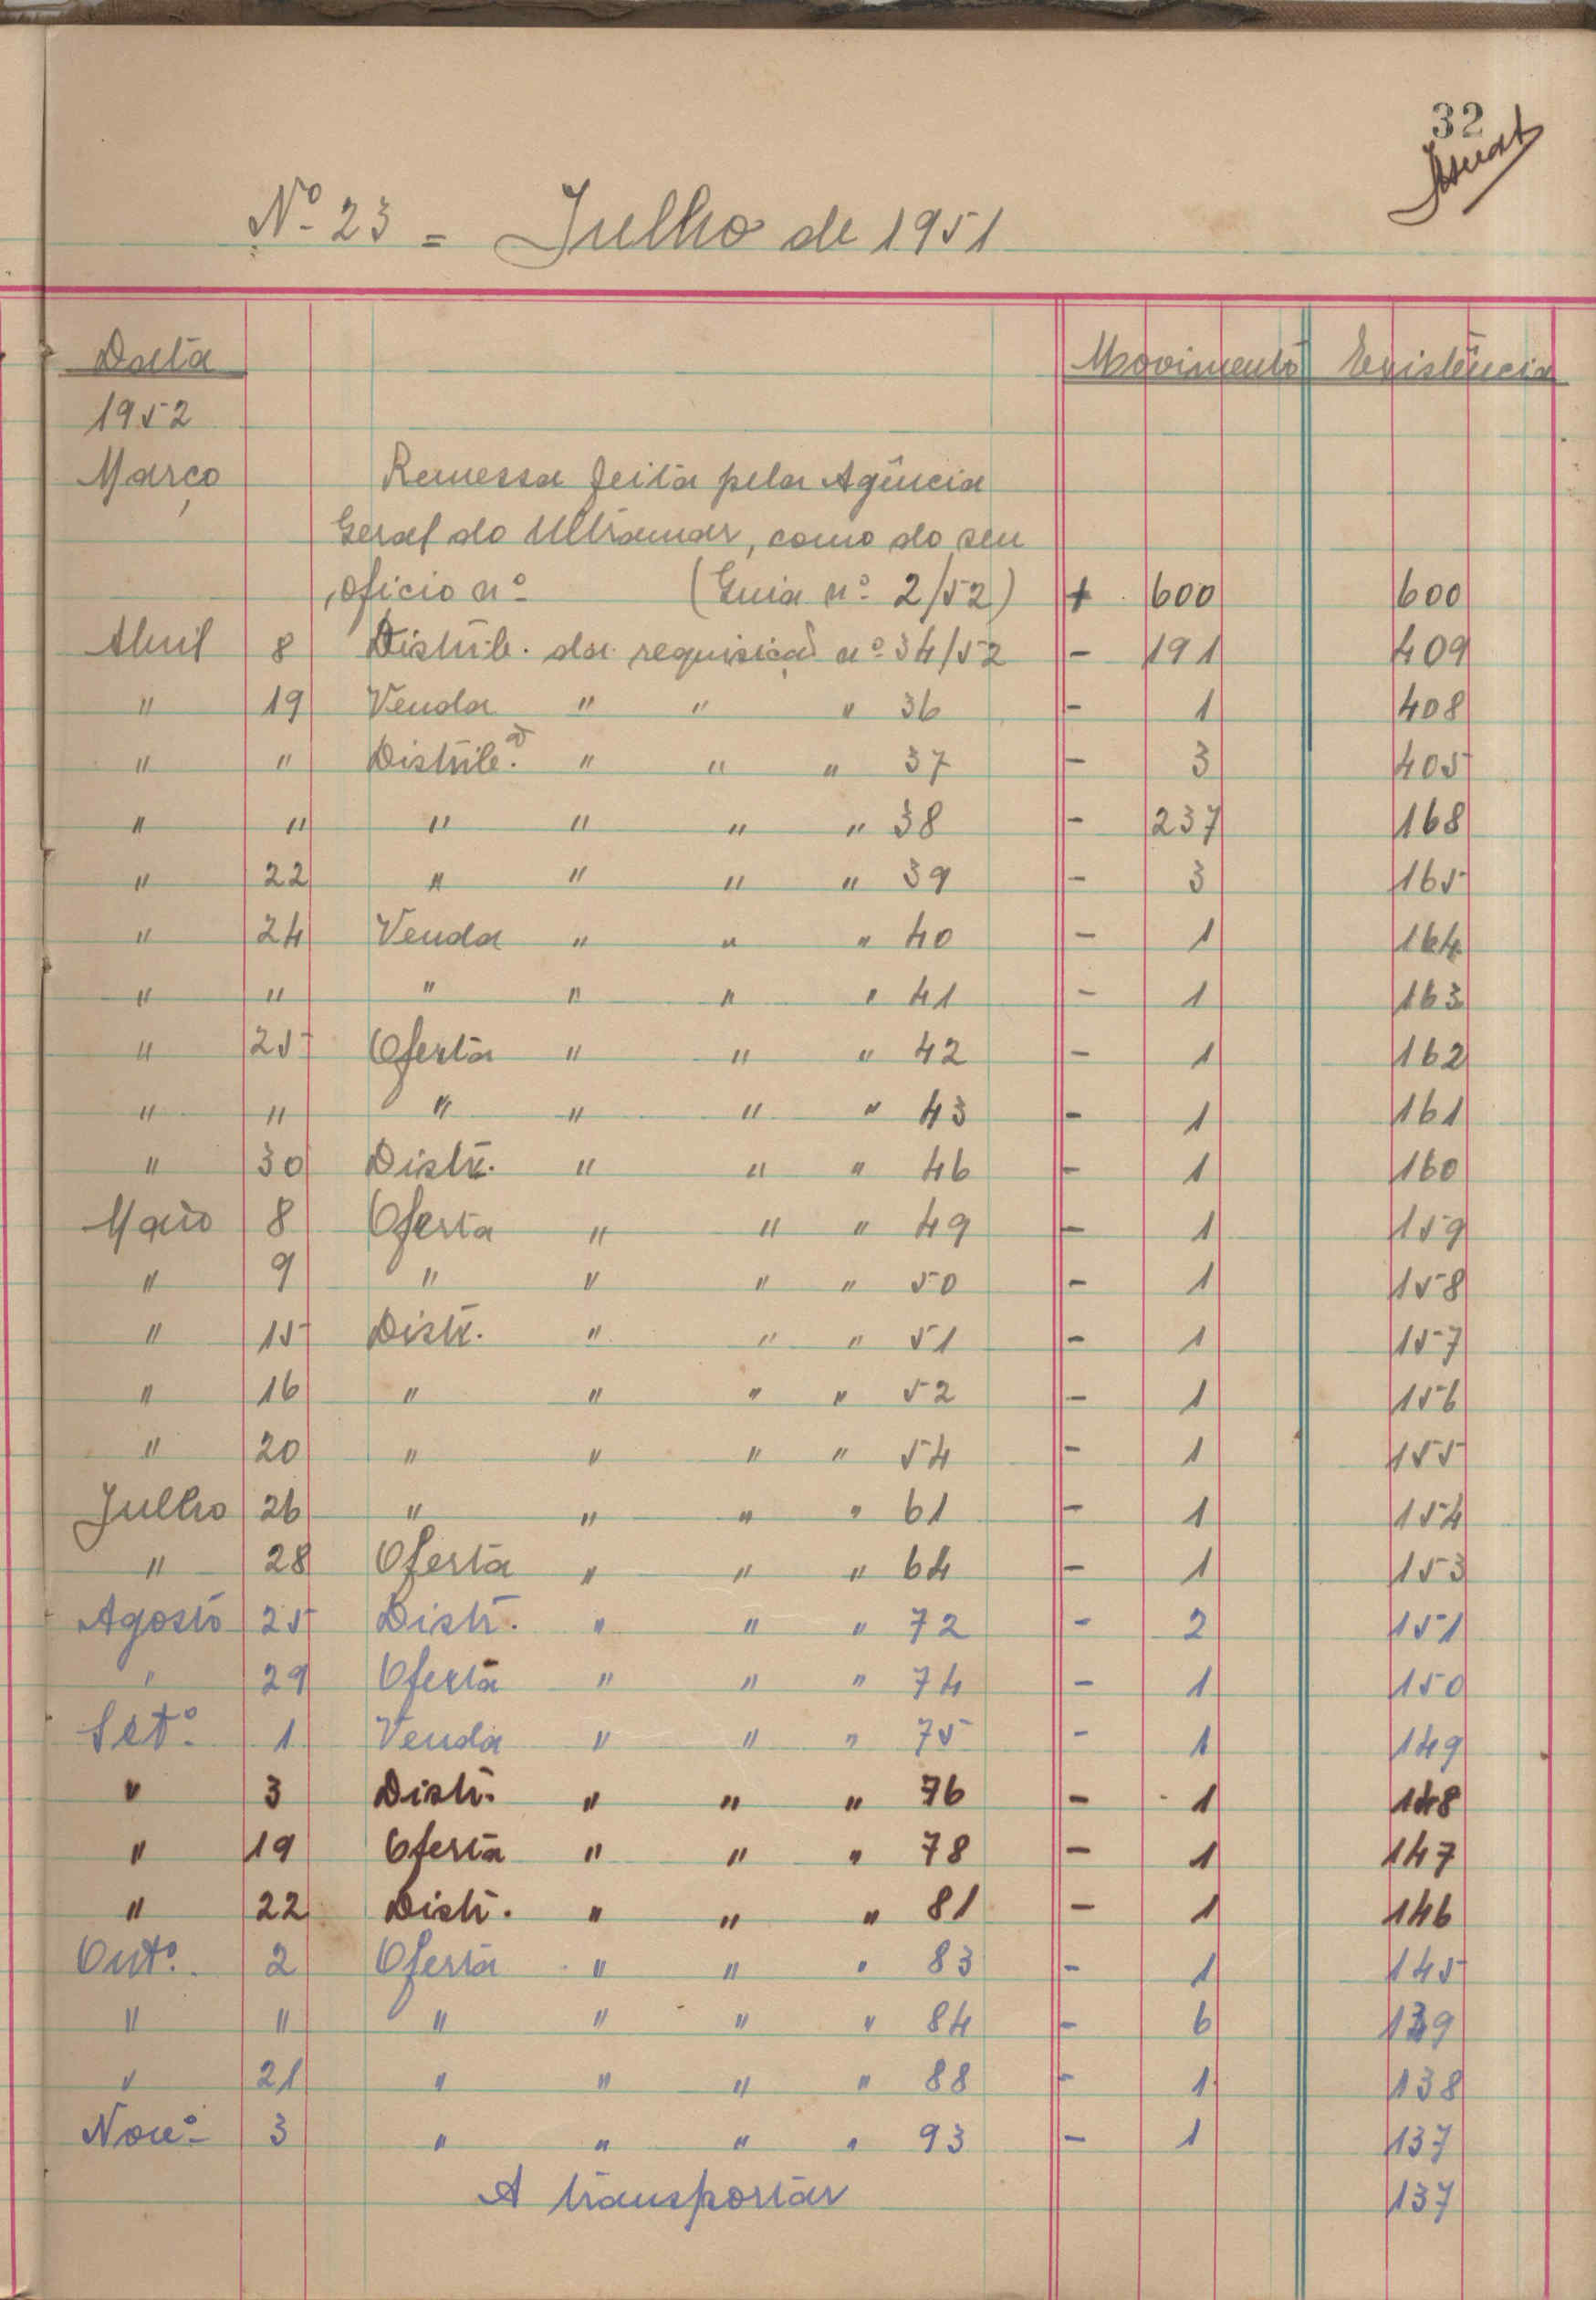 32
Nº 23 = Julho de 1951
Data Movimento Existência
1952
Março Remessa feita pela Agência
Geral do Ultramar, como do seu
ofício nº (Guia nº 2/52) + 600 600
Abril 8 Distrib. da requisição nº 34/52 - 191 409
" 19 Venda " " " 36 - 1 408
" " Distrib. " " " 37 - 3 405
" " " " " " 38 - 237 168
" 22 " " " " 39 - 3 165
" 24 Venda " " " 40 - 1 164
" " " " " " 41 - 1 163
" 25 Oferta " " " 42 - 1 162
" " " " " " 43 - 1 161
" 30 Distr. " " " 46 - 1 160
Maio 8 Oferta " " " 49 - 1 159
" 9 " " " " 50 - 1 158
" 15 Distr. " " " 51 - 1 157
" 16 " " " " 52 - 1 156
" 20 " " " " 54 - 1 155
Julho 26 " " " " 61 - 1 154
" 28 Oferta " " " 64 - 1 153
Agosto 25 Distr. " " " 72 - 2 151
" 29 Oferta " " " 74 - 1 150
Setº 1 Venda " " " 75 - 1 149
" 3 Distr. " " " 76 - 1 148
" 19 Oferta " " " 78 - 1 147
" 22 Distr. " " " 81 - 1 146
Outº. 2 Oferta " " " 83 - 1 145
" " " " " " 84 - 6 139
" 21 " " " " 88 - 1 138
Novº 3 " " " " 93 - 1 137
A transportar 137